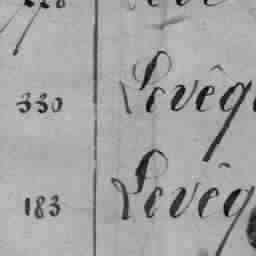 330 Levêq
183 Levêq